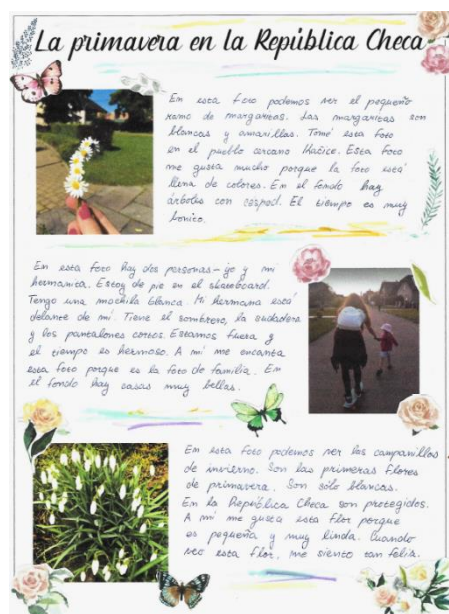 La primavera en la República Checa
En esta foto podemos ver el pequeño
ramo de margaritas. Las margaritas son
blancas y amarillas. Tomé esta foto
en el pueblo cercano Hačice. Esta foto
me gusta mucho porque la foto está
llena de colores. En el fondo hay
árboles con césped. El tiempo es muy
bonito.
En esta foto hay dos personas – yo y mi
hermanita. Estoy de pie en el skateboard.
Tengo una mochila blanca. Mi hermana está
delante de mí. Tiene el sombrero, la sudadera
y los pantalones cortos. Estamos fuera y
el tiempo es hermoso. A mí me encanta
esta foto porque es la foto de familia. En
el fondo hay casas muy bellas.
En esta foto podemos ver las campanillas
de invierno. Son las primeras flores
de primavera. Son sólo blancas.
En la República Checa son protegidos.
A mí me gusta esta flor porque
es pequeña y muy linda. Cuando
veo esta flor, me siento tan feliz.